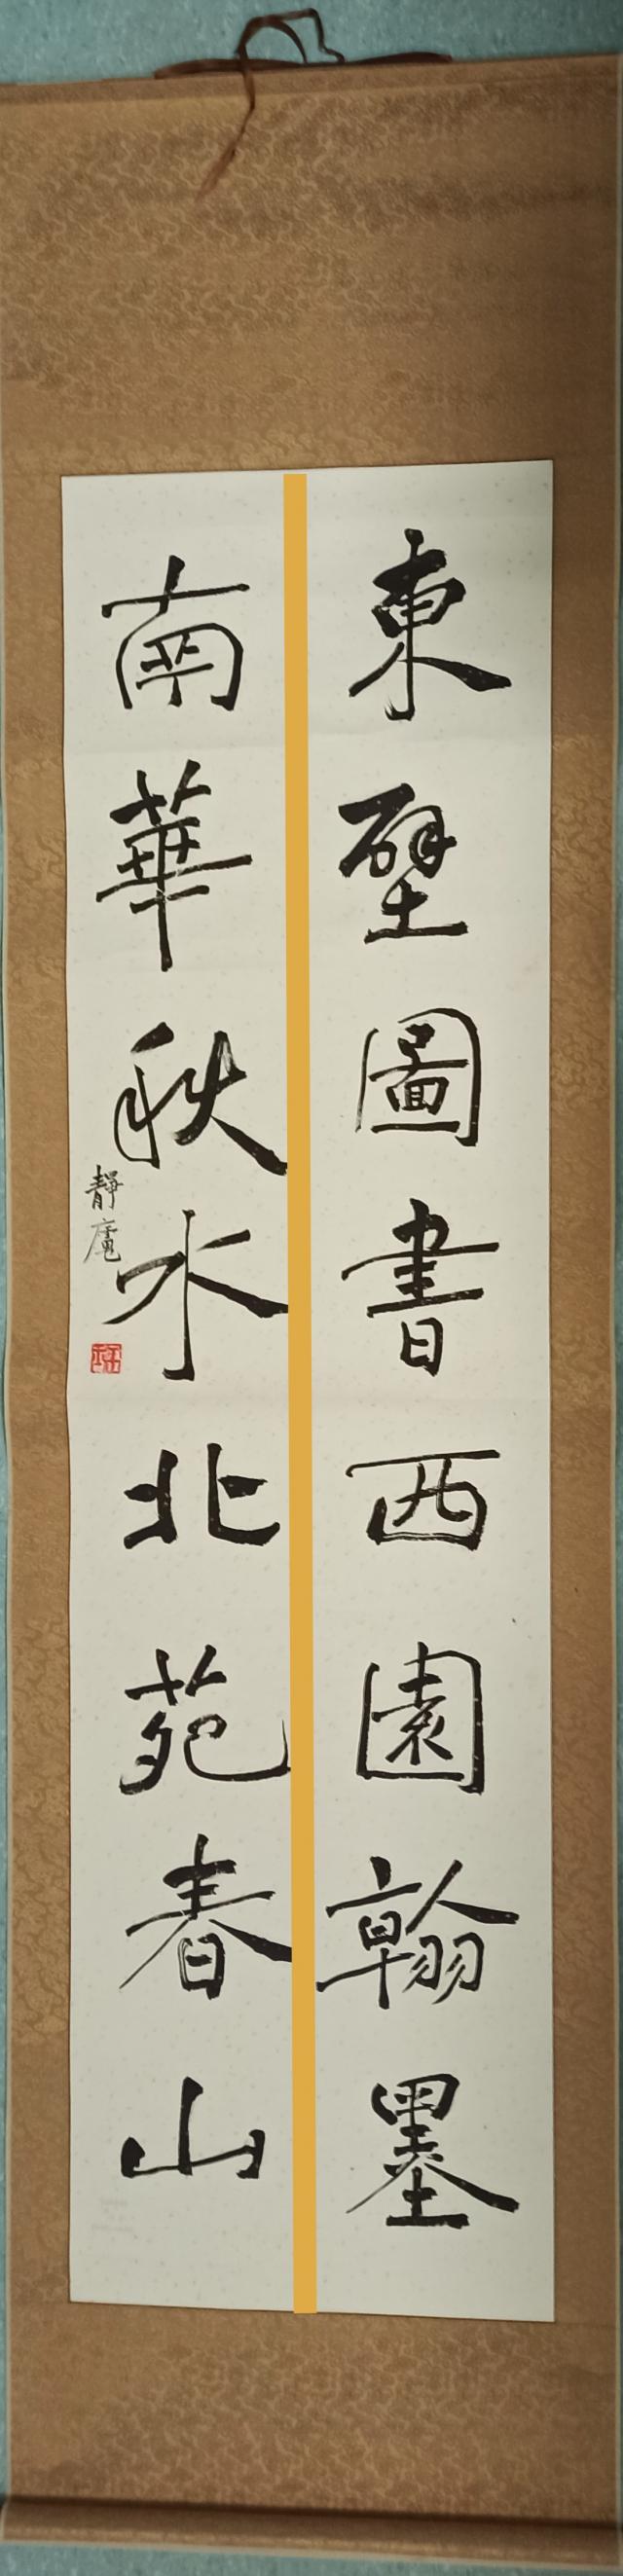 東壁圖書西園翰墨
南華秋水北苑春山
靜庵